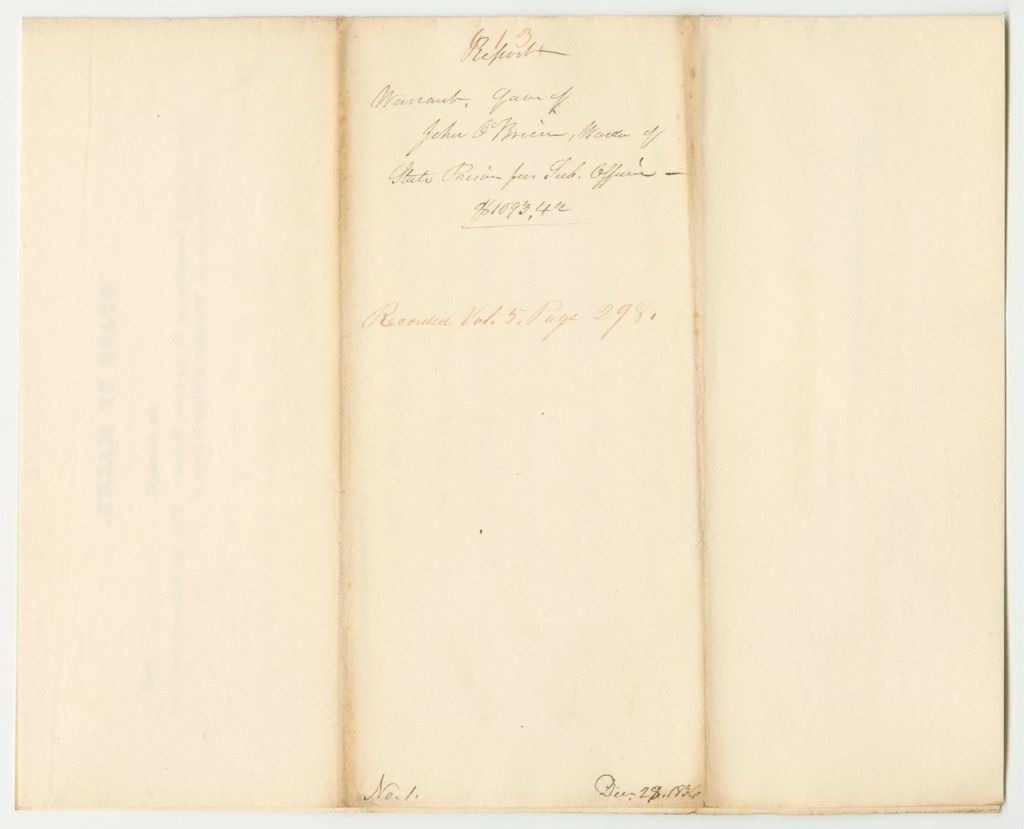 613.
Report
Warrant, favr of
John O'Brien, Warden of
State Prison for Sub. Officers —
$1093,42
Recorded Vol. 5. Page 298.
No. 1.
Dec. 28. 1836
STATE OF MAINE.